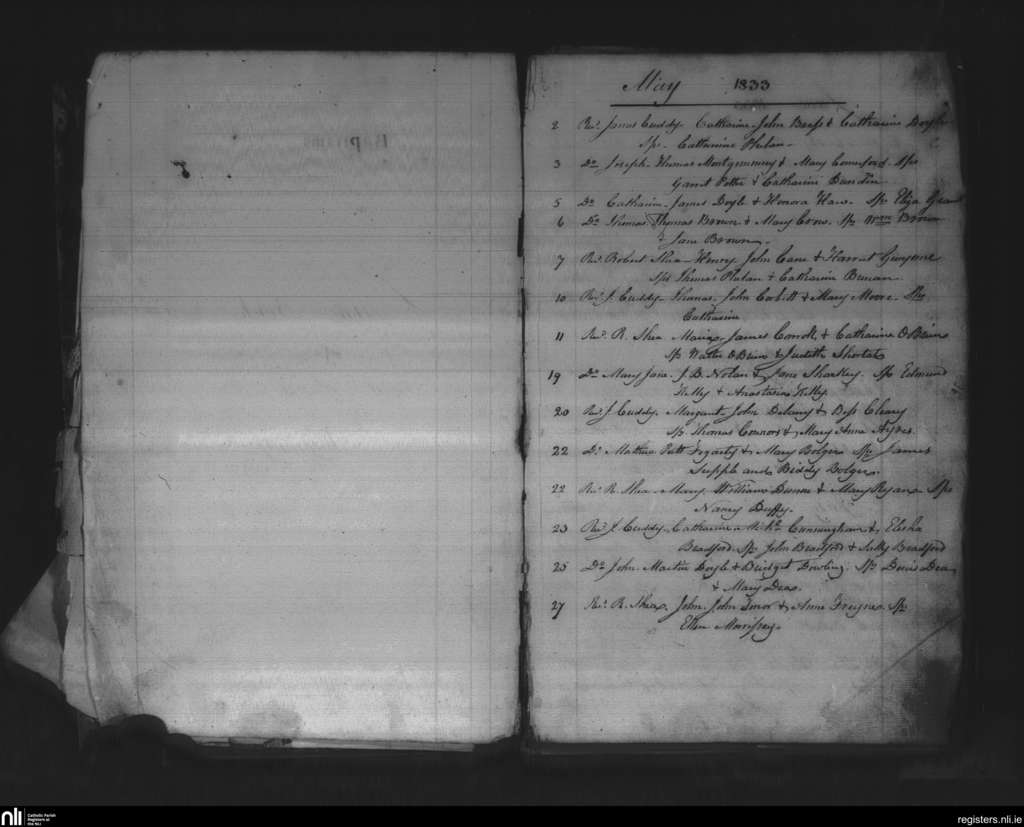 Baptisms
May 1833
2 Revd. James Cuddy. Catharine. John Bress & Catharine Doyle
Sps. Catharine Phelan
3 Do. Joseph. Thomas Montgommery & Mary Comerford. Sps
Garret Potter & Catharine
5 Do. Catharine. James Doyle & Honora Haw. Sps Eliza Grant
6 Do. Thomas. Thomas Brown & Mary Crow. Sps Wm Brown
& Jane Brown.
7 Revd. Robert Shea. Henry. John Cane & Harriet
Sps Thomas Phelan & Catharine Brenan
10 Revd. J. Cuddy. Thomas. John & Mary Moore. Sps
Catharine
11 Revd. R. Shea. Maria. James Carroll & Catharine O Brien
Sps Walter O Brien & Judith
19 Do. Mary Jane. J. B. Nolan & Jane Sharkey. Sps Edmund
Kelly & Anastasia Kelly.
20 Revd. J. Cuddy. Margaret. John Delany & Bess Cleary
Sps Thomas Connors & Mary Anne Ayres.
22 Do. Mathew. Patt Fogarty & Mary Bolger. Sps James
Supple and Biddy Bolger.
22 Revd. R. Shea. Mary. William Dunne & Mary Ryan. Sps
Nancy Duffy.
23 Revd. J. Cuddy. Catharine. Cunningham & Elisha
Bradford. Sps John Bradford & Sally Bradford
25 Do. John. Martin Doyle & Bridget Dowling. Sps Denis Dea
& Mary Dea.
27 Revd. R. Shea. John. John & Anne Freyne. Sps
Ellen Morrissey.
nli
Catholic Parish
Registers at
the NLI
registers.nli.ie